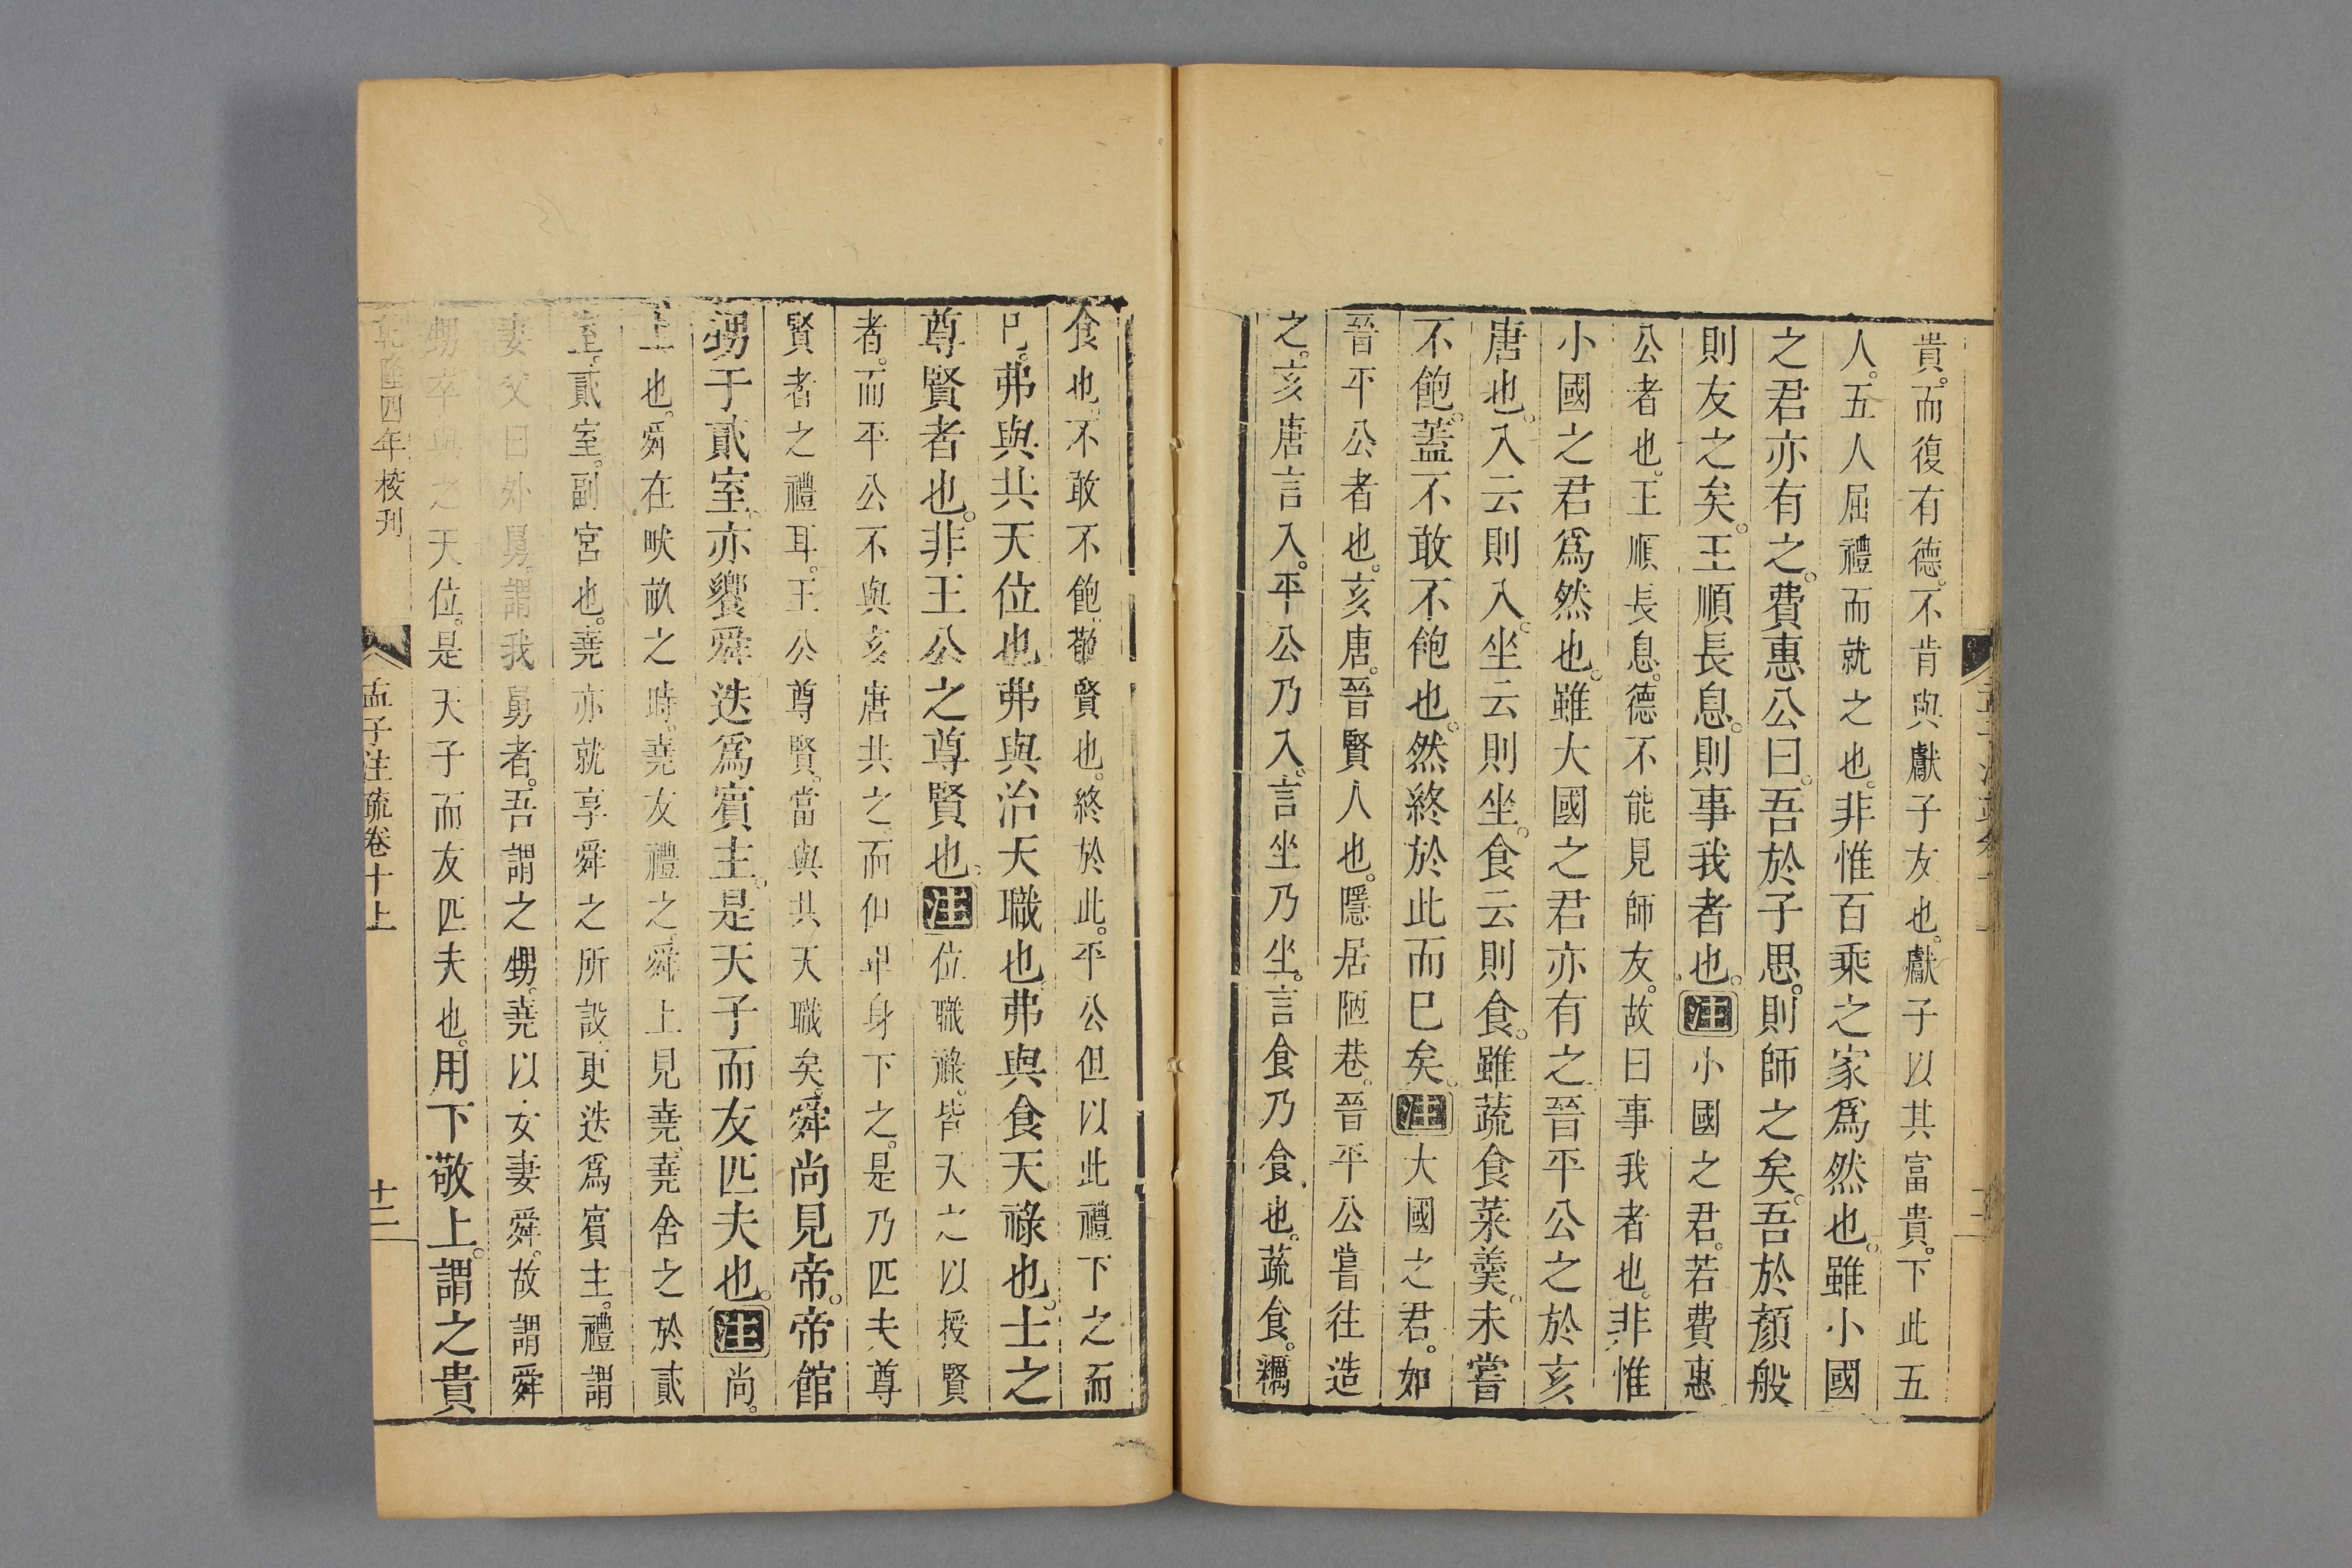 貴。而復有德。不肯與獻子友也。獻子以其富貴。下此五
人。五人屈禮而就之也。非惟百乘之家爲然也。雖小國
之君亦有之。費惠公曰。吾於子思。則師之矣。吾於顏般
則友之矣。王順長息。則事我者也。注小國之君。若費惠
公者也。王順長息。德不能見師友。故曰事我者也。非惟
小國之君爲然也。雖大國之君亦有之。晉平公之於亥
唐也。入云則入。坐云則坐。食云則食。雖蔬食菜羹。未嘗
不飽。蓋不敢不飽也。然終於此而巳矣。注大國之君。如
晉平公者也。亥唐。晉賢人也。隱居陋巷。晉平公嘗往造
之。亥唐言入。平公乃入。言坐乃坐。言食乃食也。蔬食。糲
食也。不敢不飽。敬賢也。終於此。平公但以此禮下之而
巳。弗與共天位也。弗與治天職也。弗與食天祿也。士之
尊賢者也。非王公之尊賢也。注位職祿。皆天之以授賢
者。而平公不與亥唐共之。而但卑身下之。是乃匹夫尊
賢者之禮耳。王公尊賢。當與共天職矣。舜尚見帝。帝館
甥于貳室。亦饗舜。迭爲賓主。是天子而友匹夫也。注尚。
上也。舜在畎畝之時。堯友禮之。舜上見堯。堯舍之於貳
室。貳室。副宮也。堯亦就享舜之所設。更迭爲賓主。禮謂
妻父曰外舅。謂我舅者。吾謂之甥。堯以女妻舜。故謂舜
甥。卒與之天位。是天子而友匹夫也。用下敬上。謂之貴
乾隆四年校刊 孟子注疏卷十上 十二